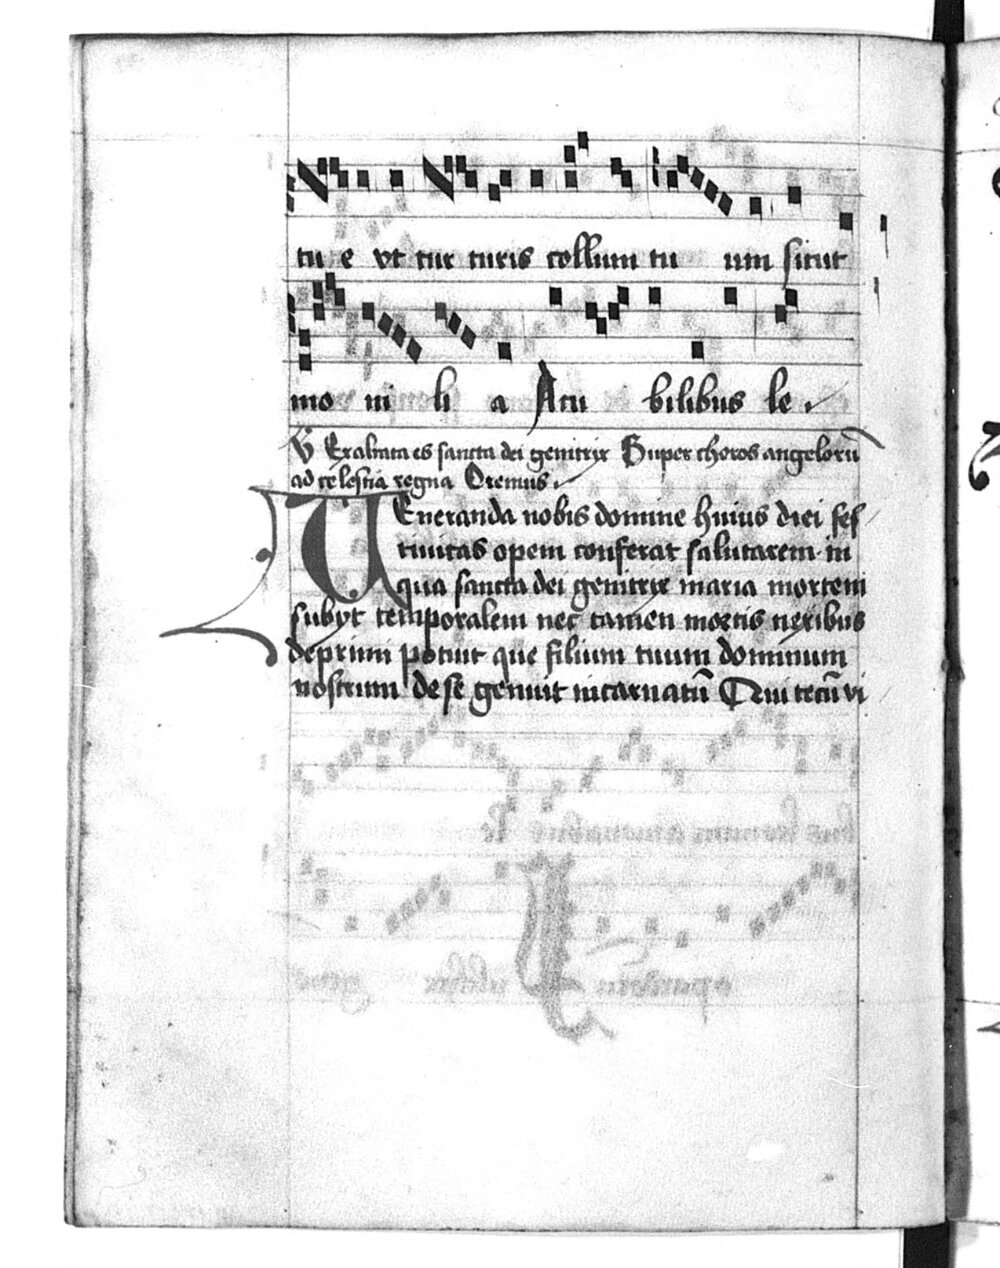 tu e ut tur turis collum tu um sicut
mo ni li a A tu bilibus le
V Exaltata es sancta dei genitrix Super choros angeloru̅
ad celestia regna Oremus
Ueneranda nobis domine huius diei fes
tiuitas opem conferat salutarem in
qua sancta dei genitrix maria mortem
subyt temporalem nec tamen mortis nexibus
deprimi potuit que filium tuum dominum
nostrum de se genuit incarnatu̅ Qui tecu̅ vi